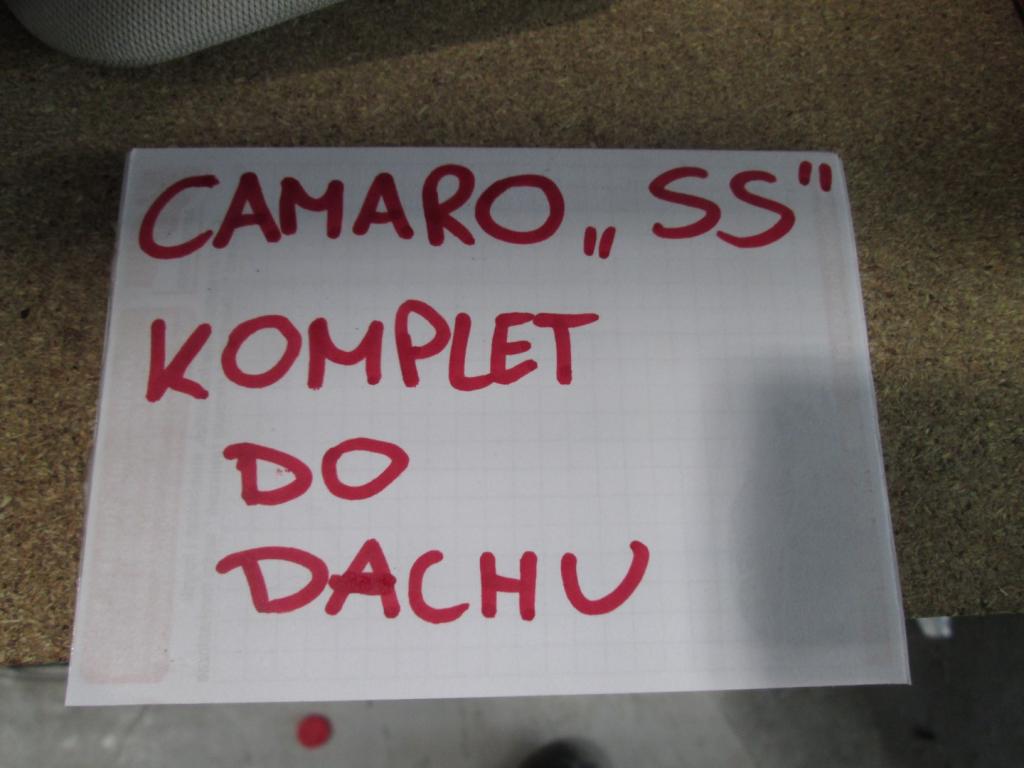 CAMARO „SS"
KOMPLET
DO
DACHU